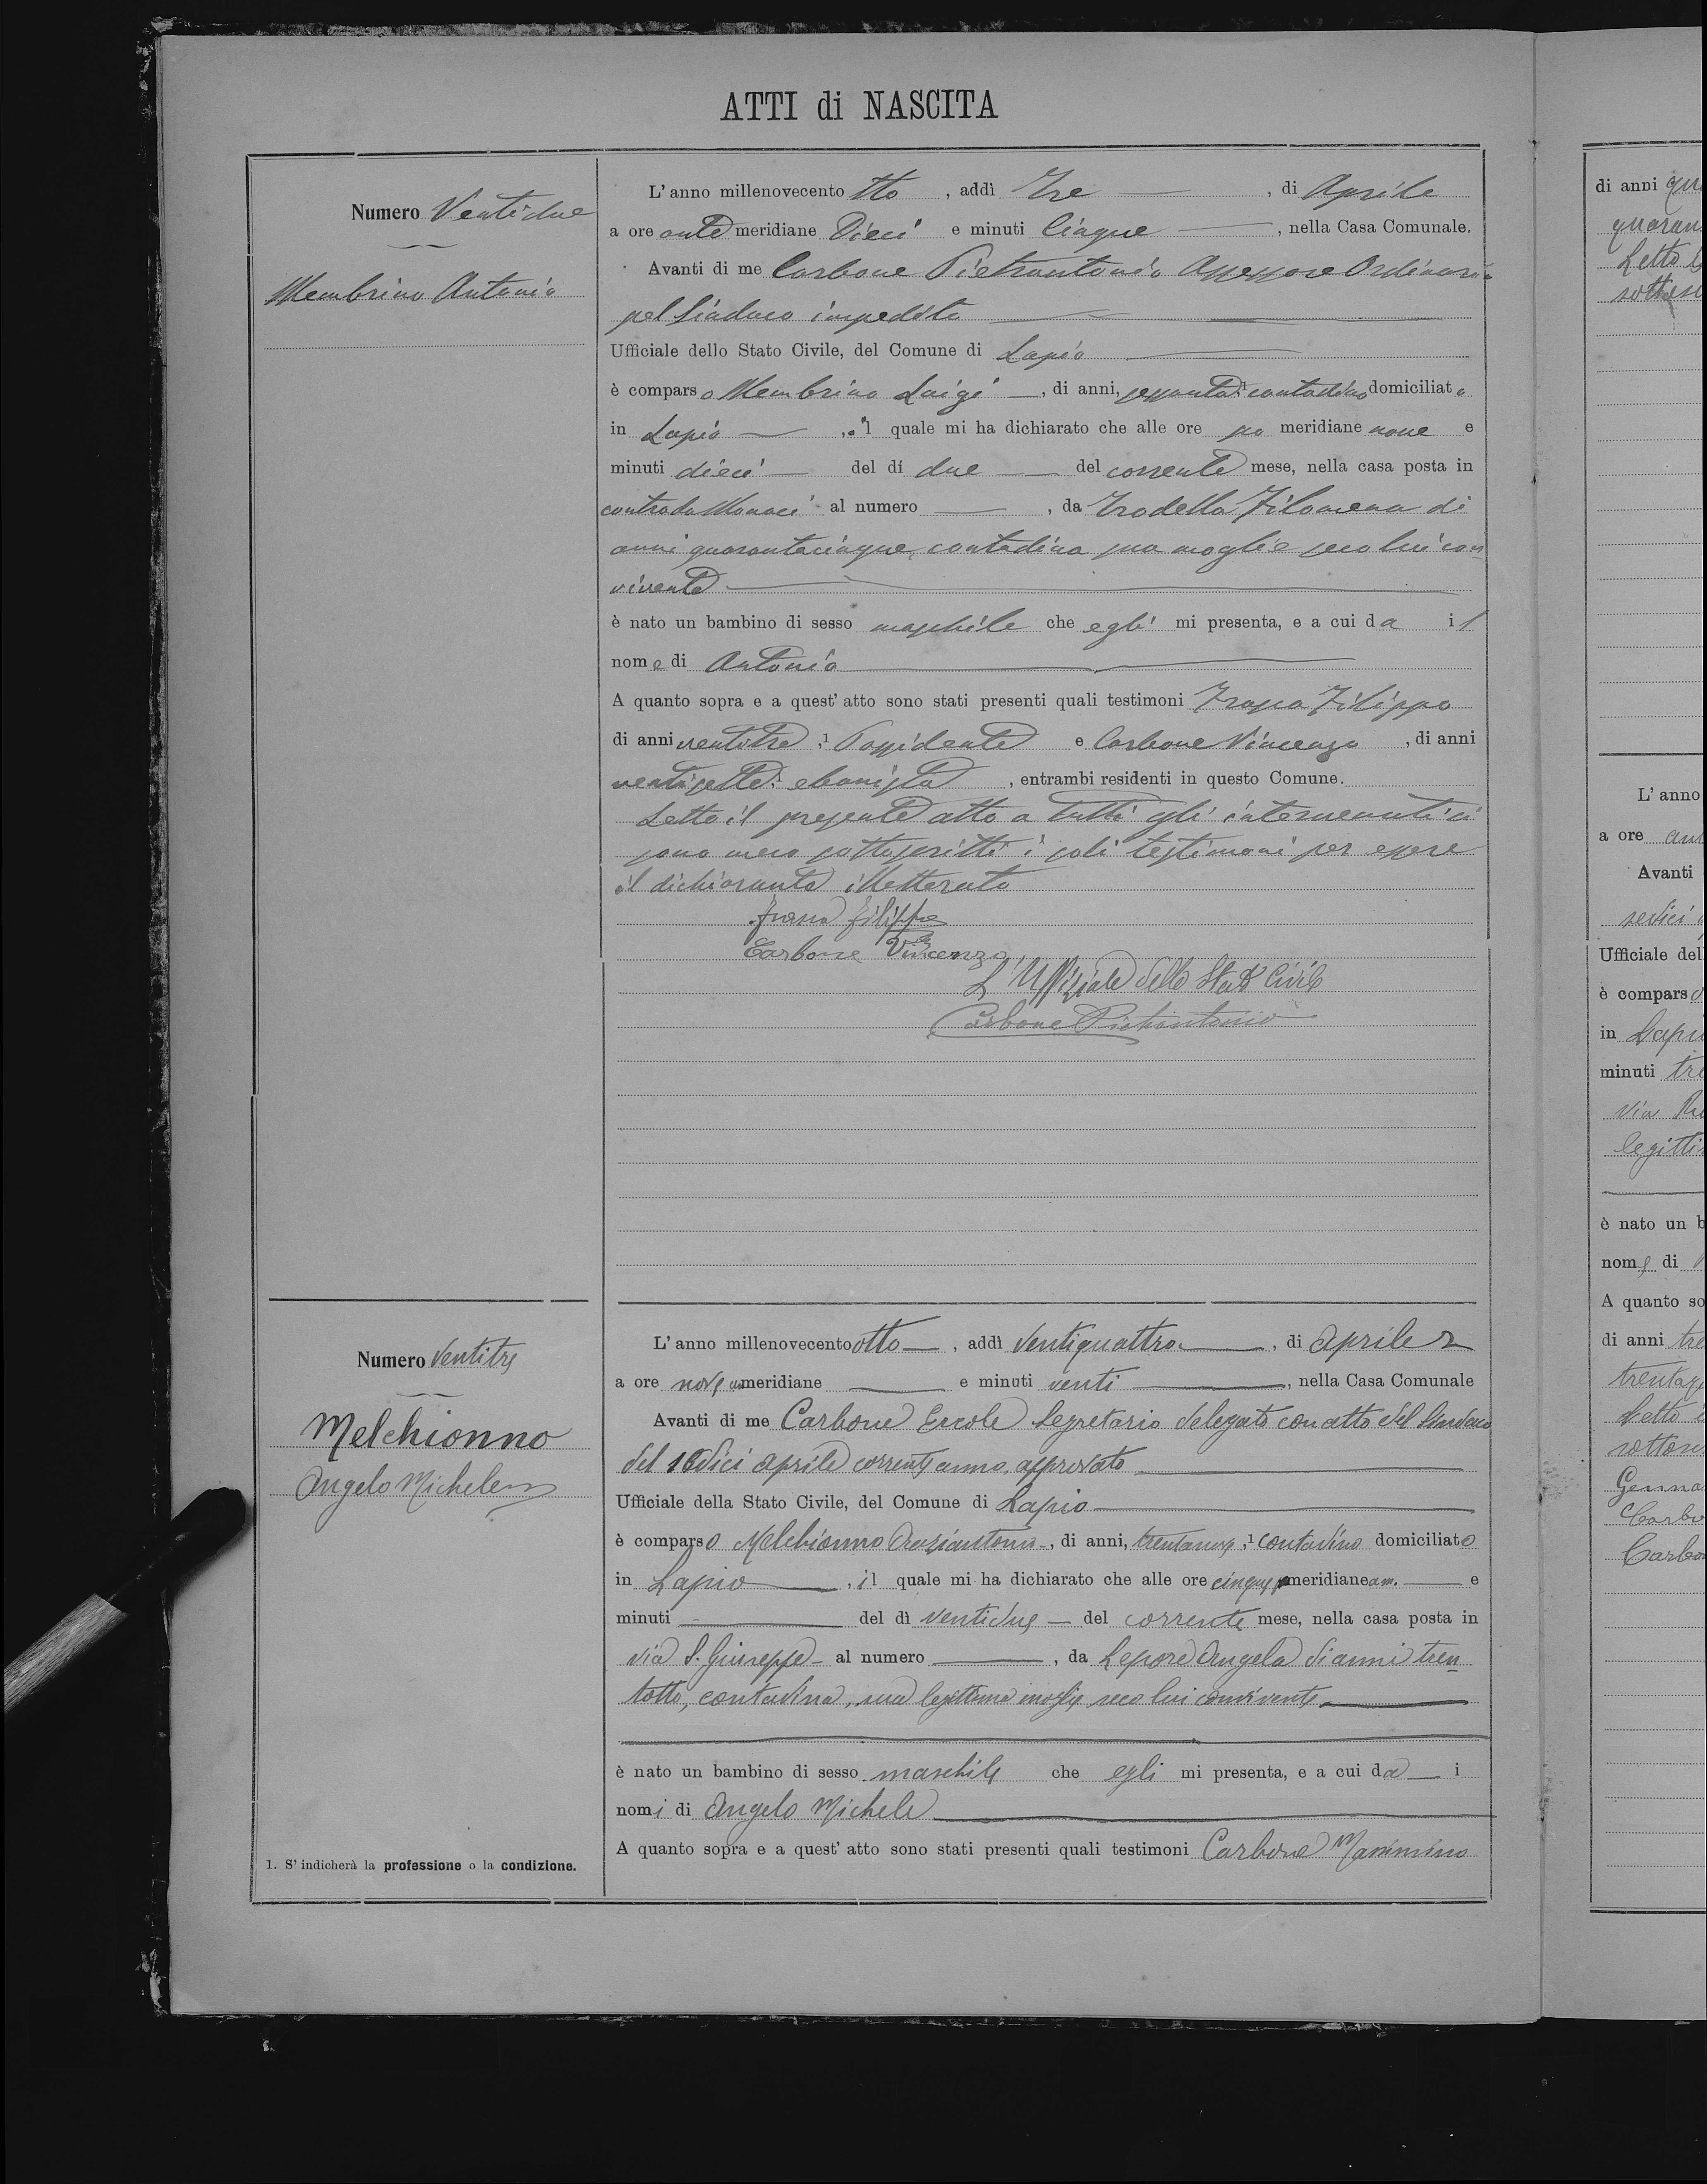 ATTI di NASCITA
Numero Ventidue
Membrino Antonio
L'anno millenovecento otto, addì Tre, di Aprile
a ore ante meridiane Dieci e minuti Cinque, nella Casa Comunale.
Avanti di me Carbone Pietrantonio Assessore Ordinario
pel Sindaco impedito
Ufficiale dello Stato Civile, del Comune di Lapio
è comparso Membrino Luigi, di anni, sessanta 1 contadino domiciliato
in Lapio, il quale mi ha dichiarato che alle ore po meridiane nove e
minuti dieci del dí due del corrente mese, nella casa posta in
contrada Monaci al numero, da Trodella Filomena di
anni quarantacinque, contadina sua moglie seco lui con
vivente
è nato un bambino di sesso maschile che egli mi presenta, e a cui da il
nome di Antonio
A quanto sopra e a quest' atto sono stati presenti quali testimoni Filippo
di anni ventitre, 1 Possidente e Carbone Vincenzo, di anni
ventisette: ebanista, entrambi residenti in questo Comune.
Letto il presente atto a tutti gli intervenuti si
sono meco sottoscritti i soli testimoni per essere
il dichiarante illetterato
Filippo
Carbone Vincenzo
L'Uffiziale dello Stato Civile
Carbone Pietrantonio
Numero Ventitre
Melchionno
Angelo Michele
L'anno millenovecento otto, addì Ventiquattro, di Aprile
a ore nove am meridiane e minuti venti, nella Casa Comunale
Avanti di me Carbone Ercole Segretario delegato con atto del Sindaco
del Sedici Aprile corrente anno, approvato
Ufficiale della Stato Civile, del Comune di Lapio
è comparso Melchionno Orazianton, di anni, trentanove, 1 contadino domiciliato
in Lapio, il quale mi ha dichiarato che alle ore cinque meridiane am. e
minuti del dì ventidue del corrente mese, nella casa posta in
via S. Giuseppe al numero, da Lepore Angela di anni tren
totto, contadina, sua legittima moglie seco lui convivente
è nato un bambino di sesso maschile che egli mi presenta, e a cui da i
nomi di Angelo Michele
A quanto sopra e a quest' atto sono stati presenti quali testimoni Carbone Massimino
1. S'indicherà la professione o la condizione.
di anni
Letto
L'anno
a ore
Avanti
sedici
Ufficiale del
è compars
in Lapio
minuti
via
è nato un b
nome di
A quanto so
di anni
Letto